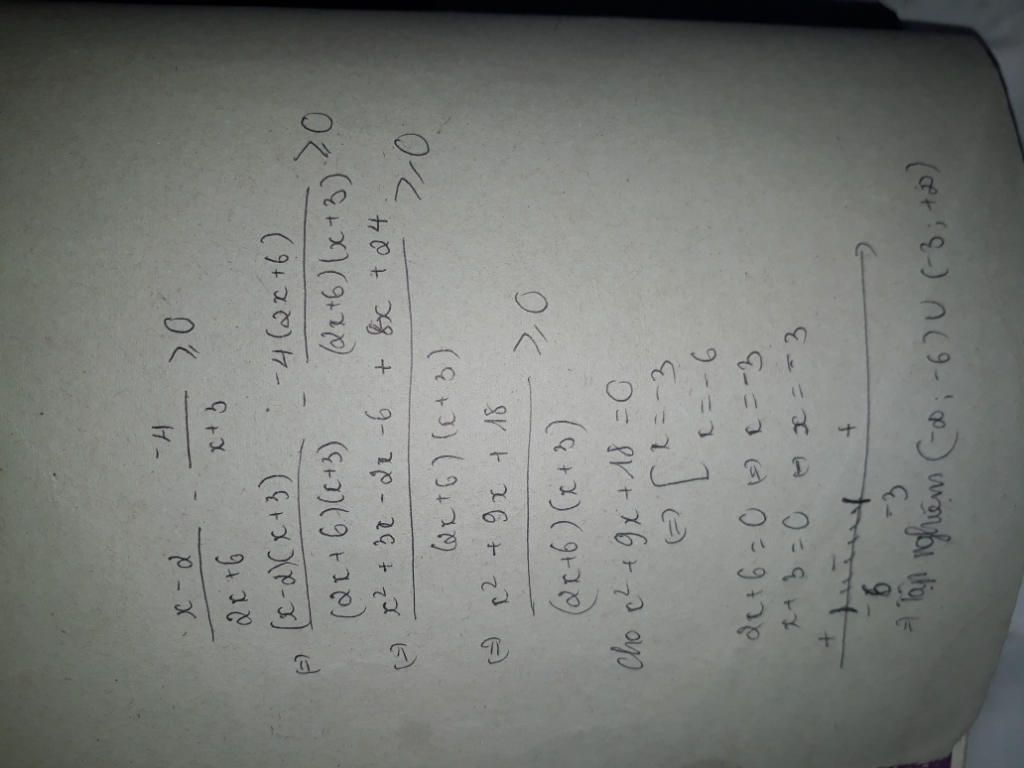 x-2/2x+6 - -4/x+3 ≥ 0
(=) (x-2)(x+3)/(2x+6)(x+3) - -4(2x+6)/(2x+6)(x+3) ≥ 0
(=) x² + 3x - 2x - 6 + 8x + 24/(2x+6)(x+3) ≥ 0
(=) x² + 9x + 18/(2x+6)(x+3) ≥ 0
Cho x² + 9x + 18 = 0
(=) [ x = -3
x = -6
2x+6 = 0 (=) x = -3
x+3 = 0 (=) x = -3
+ - +
-6 -3
=) Tập nghiệm (-∞; -6) ∪ (-3; +∞)